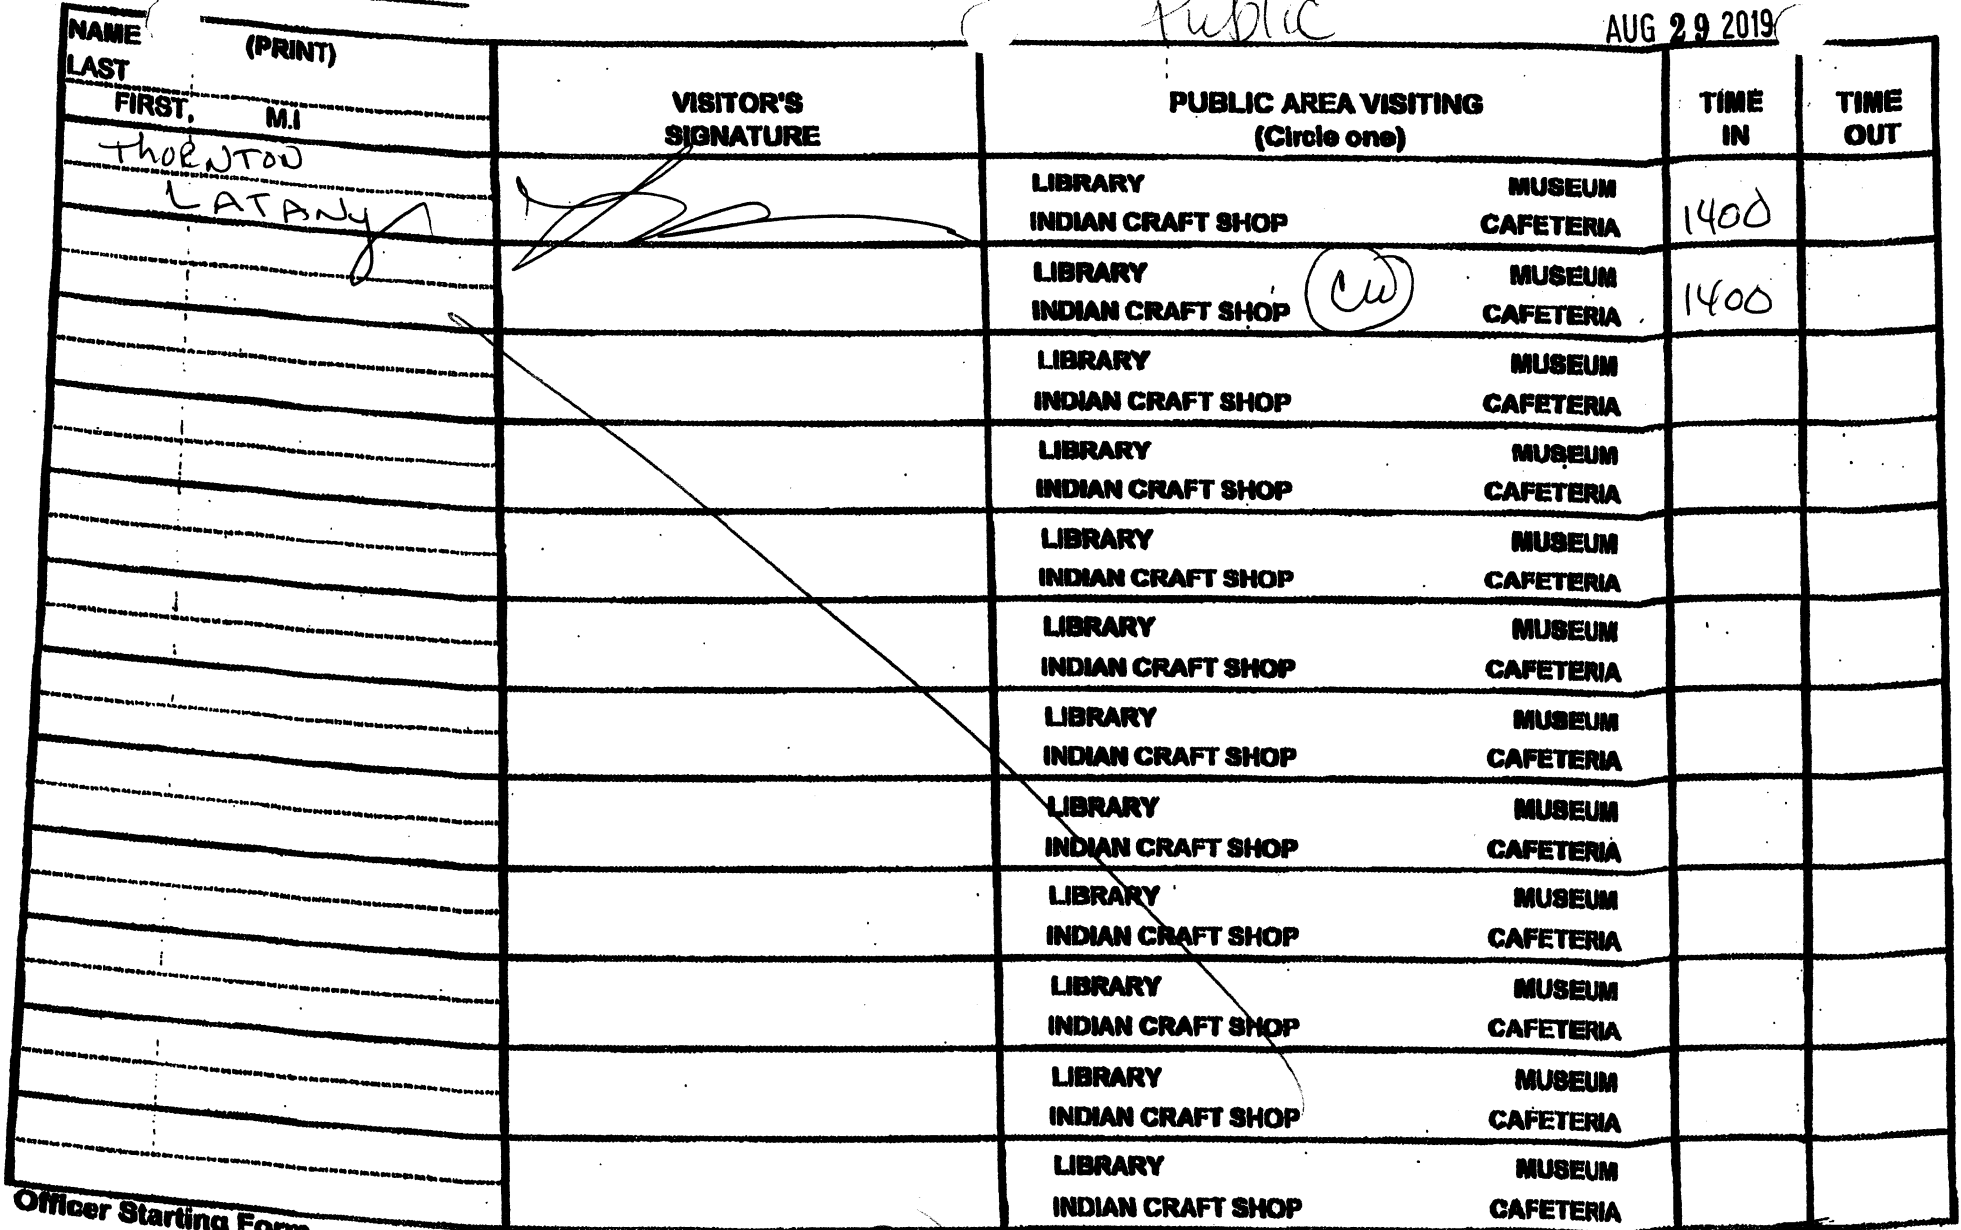 Public
AUG 29 2019
NAME (PRINT)
LAST
FIRST, M.I
VISITOR'S
SIGNATURE
PUBLIC AREA VISITING
(Circle one)
TIME
IN
TIME
OUT
THORNTON
LATANYA
LIBRARY MUSEUM
INDIAN CRAFT SHOP CAFETERIA
1400
LIBRARY MUSEUM
INDIAN CRAFT SHOP CAFETERIA
1400
LIBRARY MUSEUM
INDIAN CRAFT SHOP CAFETERIA
LIBRARY MUSEUM
INDIAN CRAFT SHOP CAFETERIA
LIBRARY MUSEUM
INDIAN CRAFT SHOP CAFETERIA
LIBRARY MUSEUM
INDIAN CRAFT SHOP CAFETERIA
LIBRARY MUSEUM
INDIAN CRAFT SHOP CAFETERIA
LIBRARY MUSEUM
INDIAN CRAFT SHOP CAFETERIA
LIBRARY MUSEUM
INDIAN CRAFT SHOP CAFETERIA
LIBRARY MUSEUM
INDIAN CRAFT SHOP CAFETERIA
LIBRARY MUSEUM
INDIAN CRAFT SHOP CAFETERIA
LIBRARY MUSEUM
INDIAN CRAFT SHOP CAFETERIA
Officer Starting Form